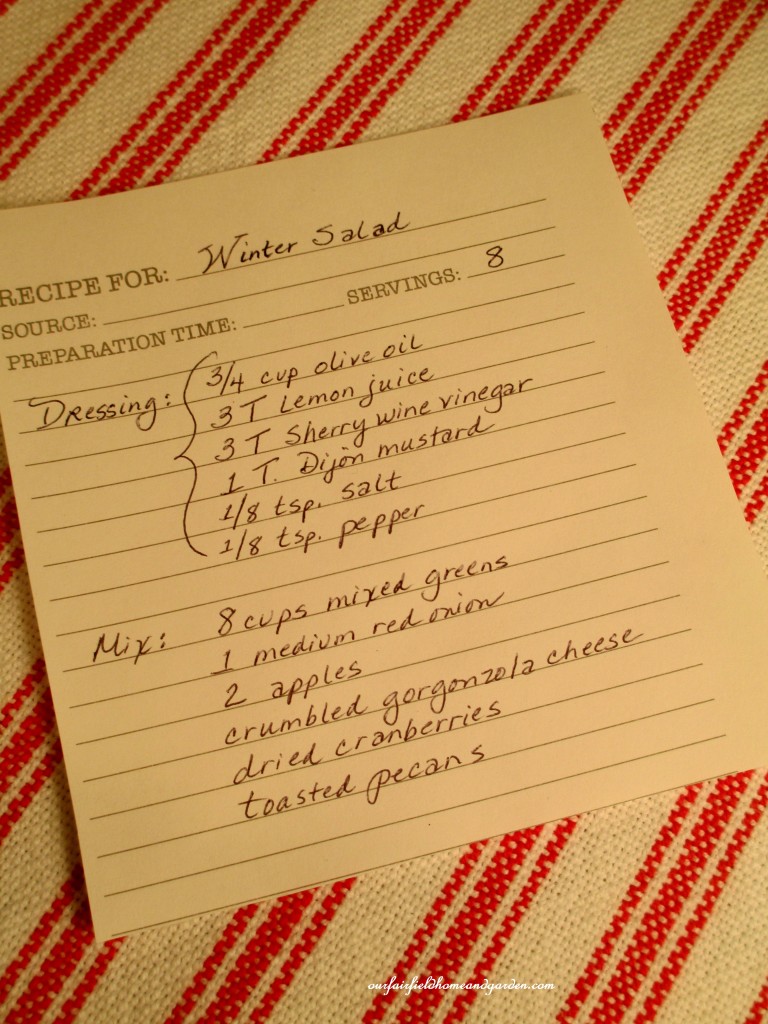 RECIPE FOR: Winter Salad
SOURCE:
PREPARATION TIME: SERVINGS: 8
Dressing: 3/4 cup olive oil
3 T Lemon juice
3 T Sherry wine vinegar
1 T. Dijon mustard
1/8 tsp. salt
1/8 tsp. pepper
Mix: 8 cups mixed greens
1 medium red onion
2 apples
crumbled gorgonzola cheese
dried cranberries
toasted pecans
ourfairfieldhomeandgarden.com